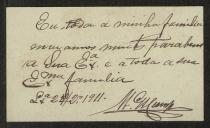 Eu toda a minha familia
enviamos muit parabens
a Sua Exª. e a toda a sua
Exma familia
22/2/1911.